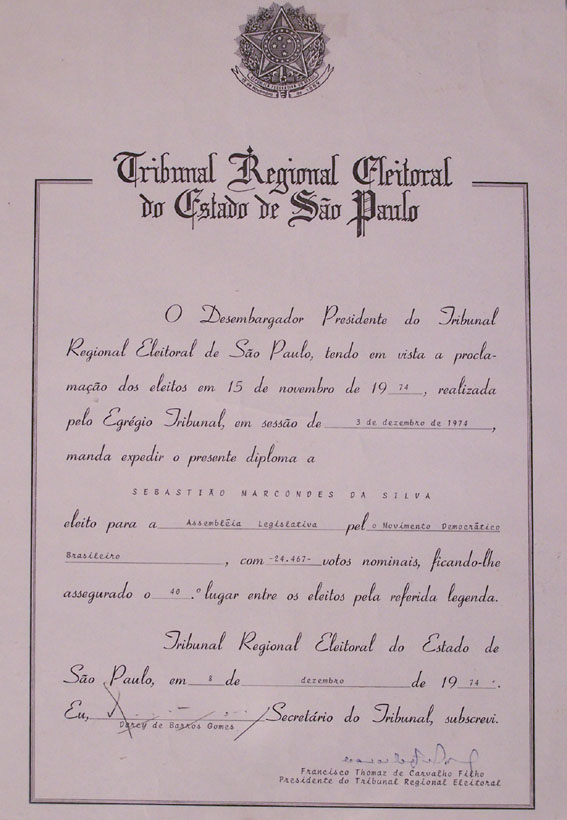 Tribunal Regional Eleitoral
do Estado de São Paulo
O Desembargador Presidente do Tribunal
Regional Eleitoral de São Paulo, tendo em vista a procla-
mação dos eleitos em 15 de novembro de 19 74, realizada
pelo Egrégio Tribunal, em sessão de 3 de dezembro de 1974,
manda expedir o presente diploma a
SEBASTIÃO MARCONDES DA SILVA
eleito para a Assembléia Legislativa pel o Movimento Democrático
Brasileiro, com -24.467- votos nominais, ficando-lhe
assegurado o 40.º lugar entre os eleitos pela referida legenda.
Tribunal Regional Eleitoral do Estado de
São Paulo, em 8 de dezembro de 19 74.
Eu, Secretário do Tribunal, subscrevi.
Darcy de Barros Gomes
Francisco Thomaz de Carvalho Filho
Presidente do Tribunal Regional Eleitoral